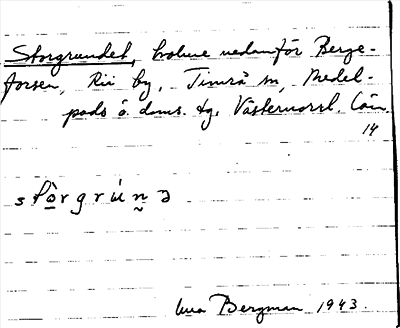 Storgrundet, holme nedanför Berge-
forsen, Rii by, Timrå sn, Medel-
pads ö. doms. tg. Västernorrl. län.
14
stòrgrúṇə
Bergman 1943.